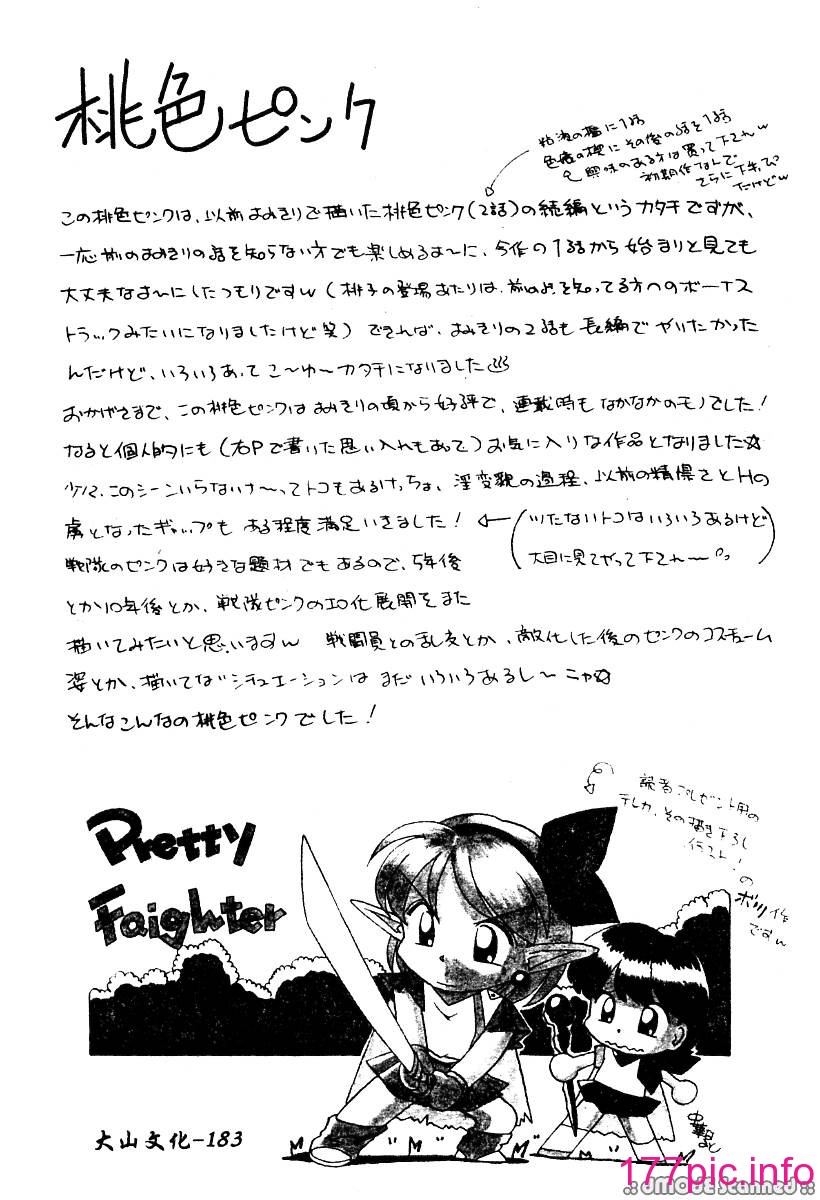 桃色ピンク
粘液の檻に1話
色癒の楔にその後の話を1話
興味のある方は買って下されw
初期作なんで
さらに下手っぴ
だけどw
この桃色ピンクは、以前よみきりで描いた桃色ピンク(2話)の続編というカタチですが、
一応前のよみきりの話を知らない方でも楽しめるよ〜に、今作の1話から始まりと見ても
大丈夫なよ〜にしたつもりですw(桃子の登場あたりは、前のを知ってる方へのボーナス
トラックみたいになりましたけど笑)できれば、よみきりの2話も長編でやりたかった
んだけど、いろいろあってこ〜ゆ〜カタチになりました
おかげさまで、この桃色ピンクはよみきりの頃から好評で、連載時もなかなかのモノでした!
なると個人的にも(右Pで書いた思い入れもあって)お気に入りな作品となりました☆
少々、このシーンいらないナ〜ってトコもあるけっちょ、淫変貌の過程、以前の精悍さとHの
虜となったギャップもある程度満足いきました!
(ツたないトコはいろいろあるけど
大目に見てやって下され〜)
戦隊のピンクは好きな題材でもあるので、5年後
とか10年後とか、戦隊ピンクのエロ化展開をまた
描いてみたいと思いますw 戦闘員との乱交とか、敵化した後のピンクのコスチューム
姿とか、描いてないシチュエーションはまだいろいろあるし〜ニャ☆
そんなこんなの桃色ピンクでした!
読者プレゼント用の
テレカ、その描き下ろし
イラスト!
のボツ作
ですw
Pretty
Faighter
大山文化-183
177pic.info
.:: aMODEscanned ::.